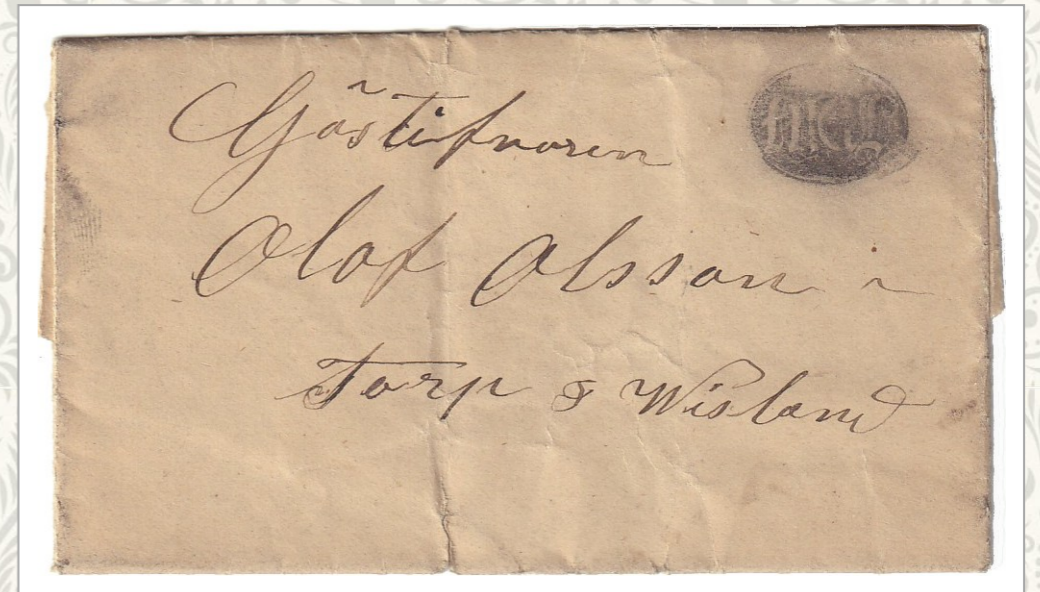 Gästifvaren
Olof Olsson i
Torp & Wisland